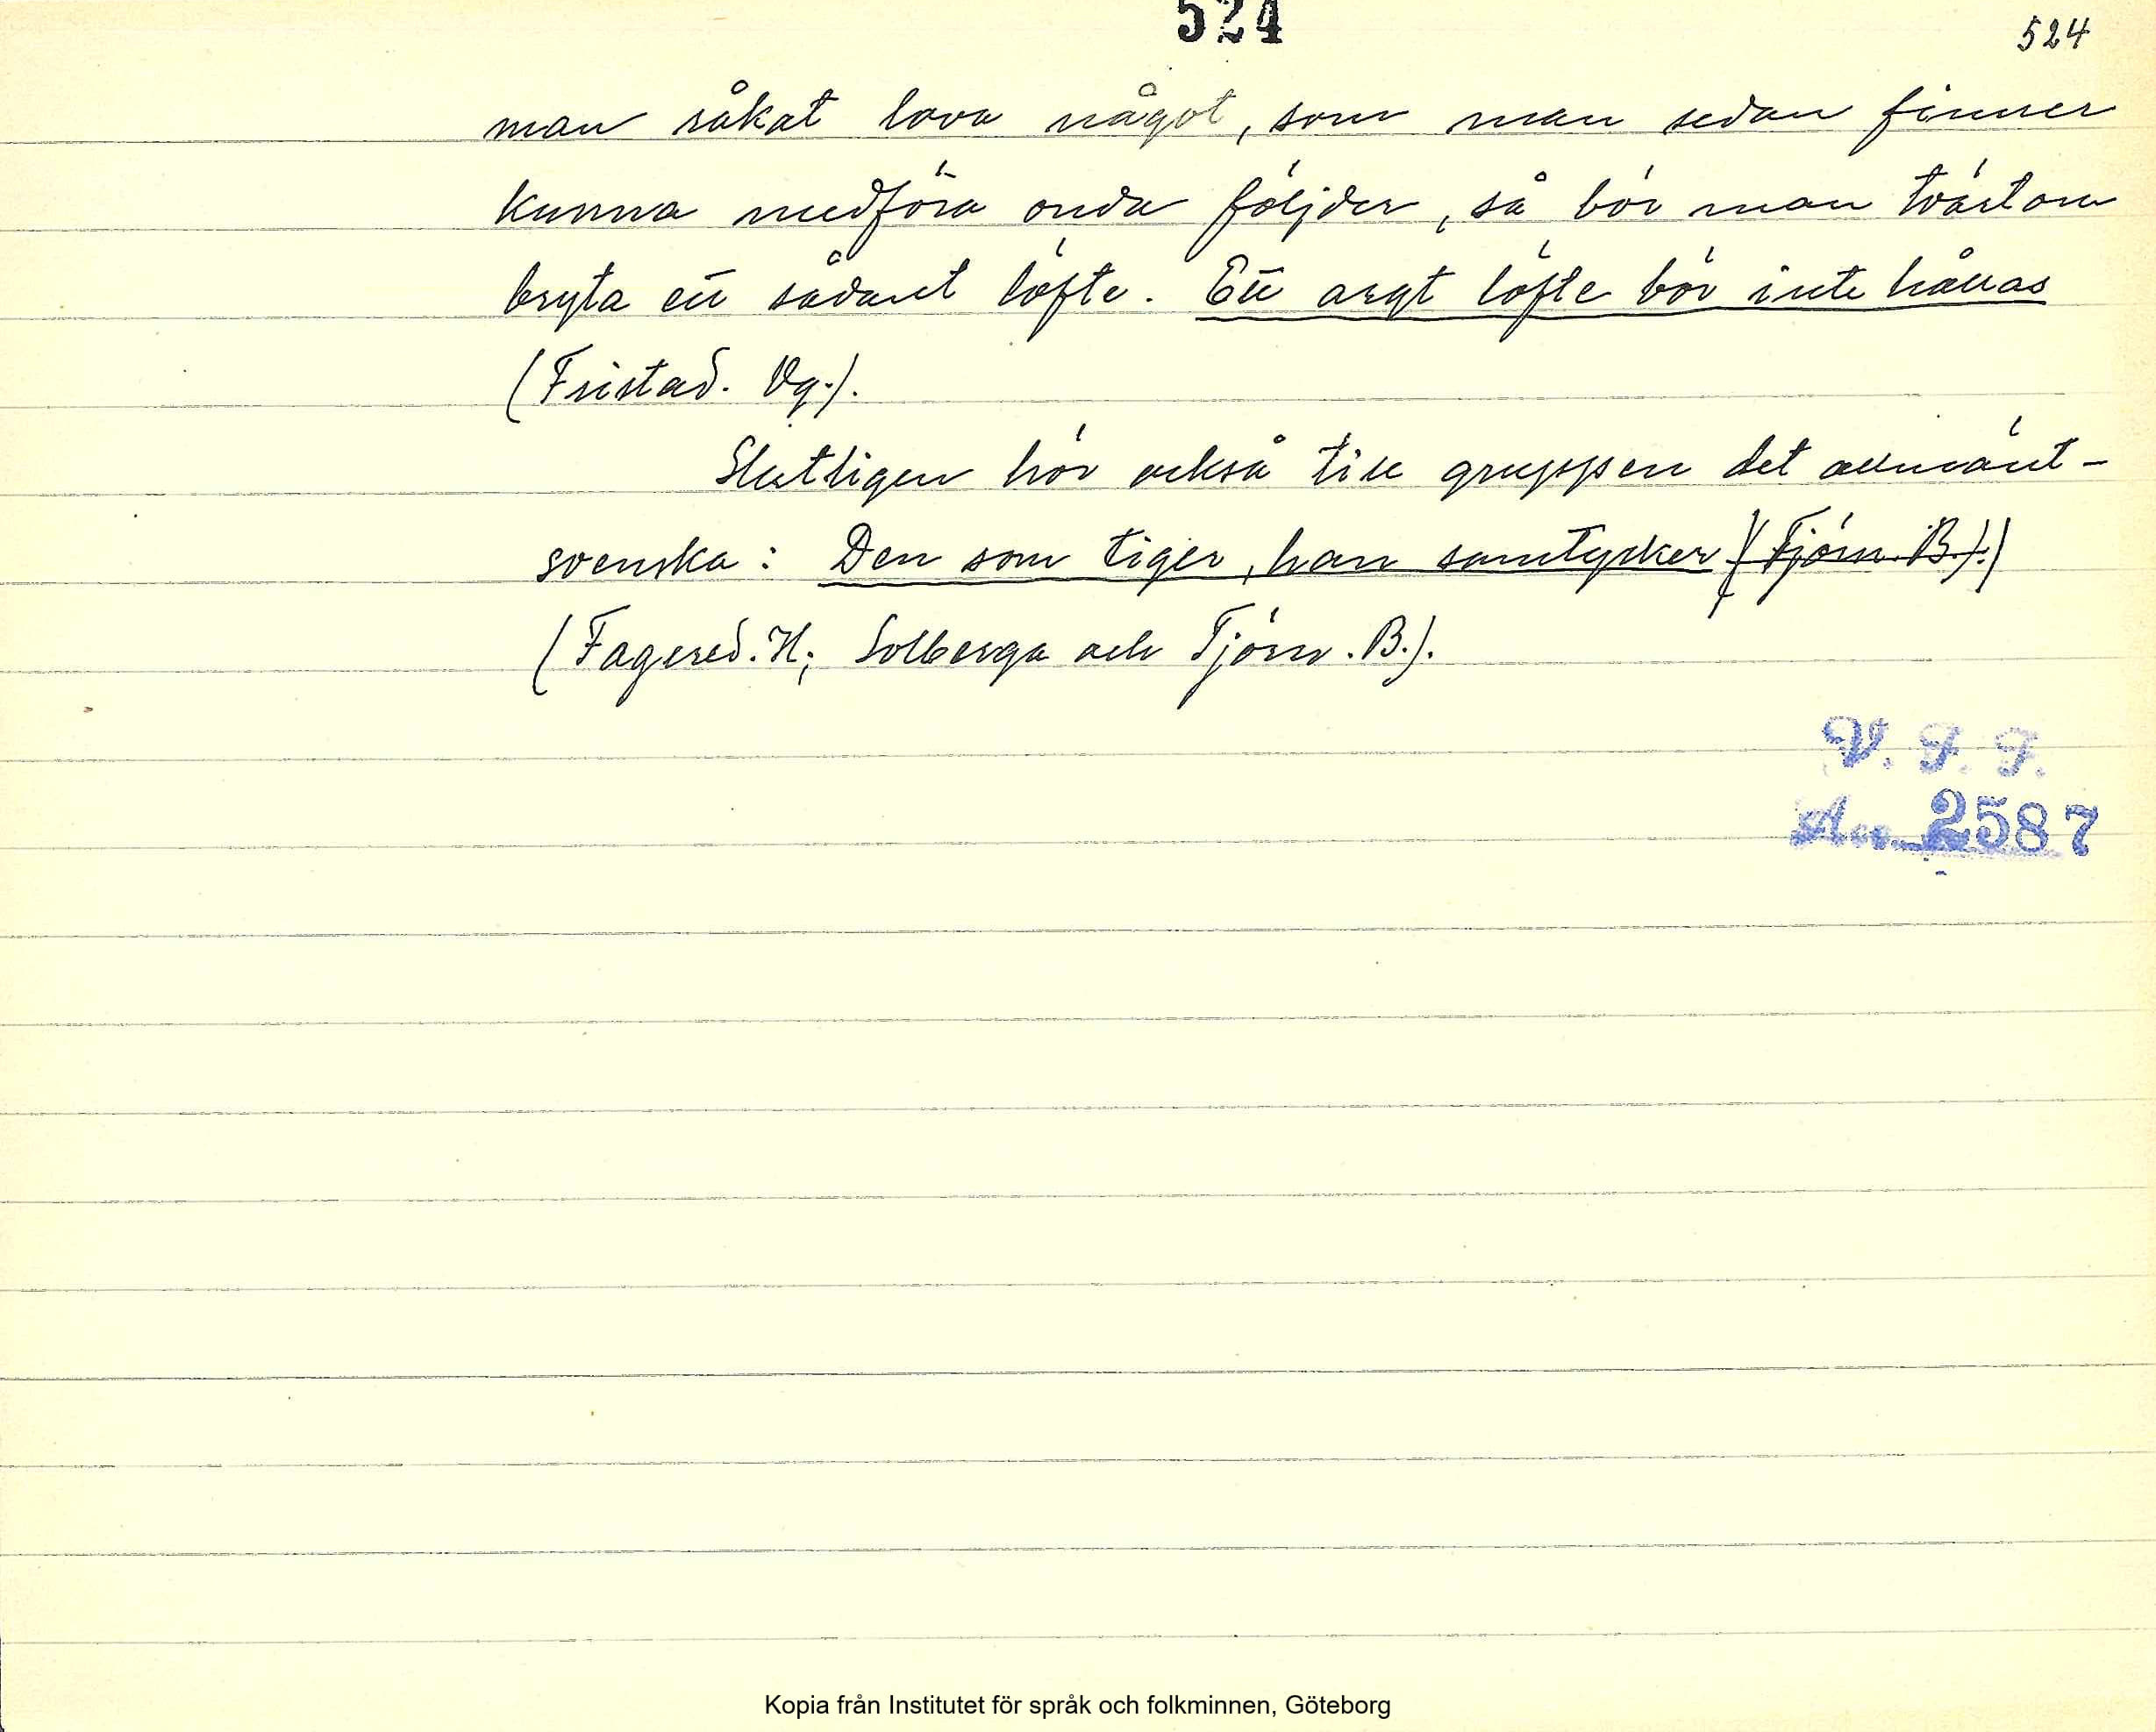 524
524
man råkat lova något, som man sedan finner
kunna medföra onda följder, så bör man tvärtom
bryta ett sådant löfte. Ett argt löfte bör inte hållas
(Fristad. Vg.).
Slutligen hör också till gruppen det allmänt-
svenska: Den som tiger, han samtycker (Tjörn. B.).
(Fagered. H; Solberga och Tjörn. B.).
V. F. F.
Acc. 2587
Kopia från Institutet för språk och folkminnen, Göteborg